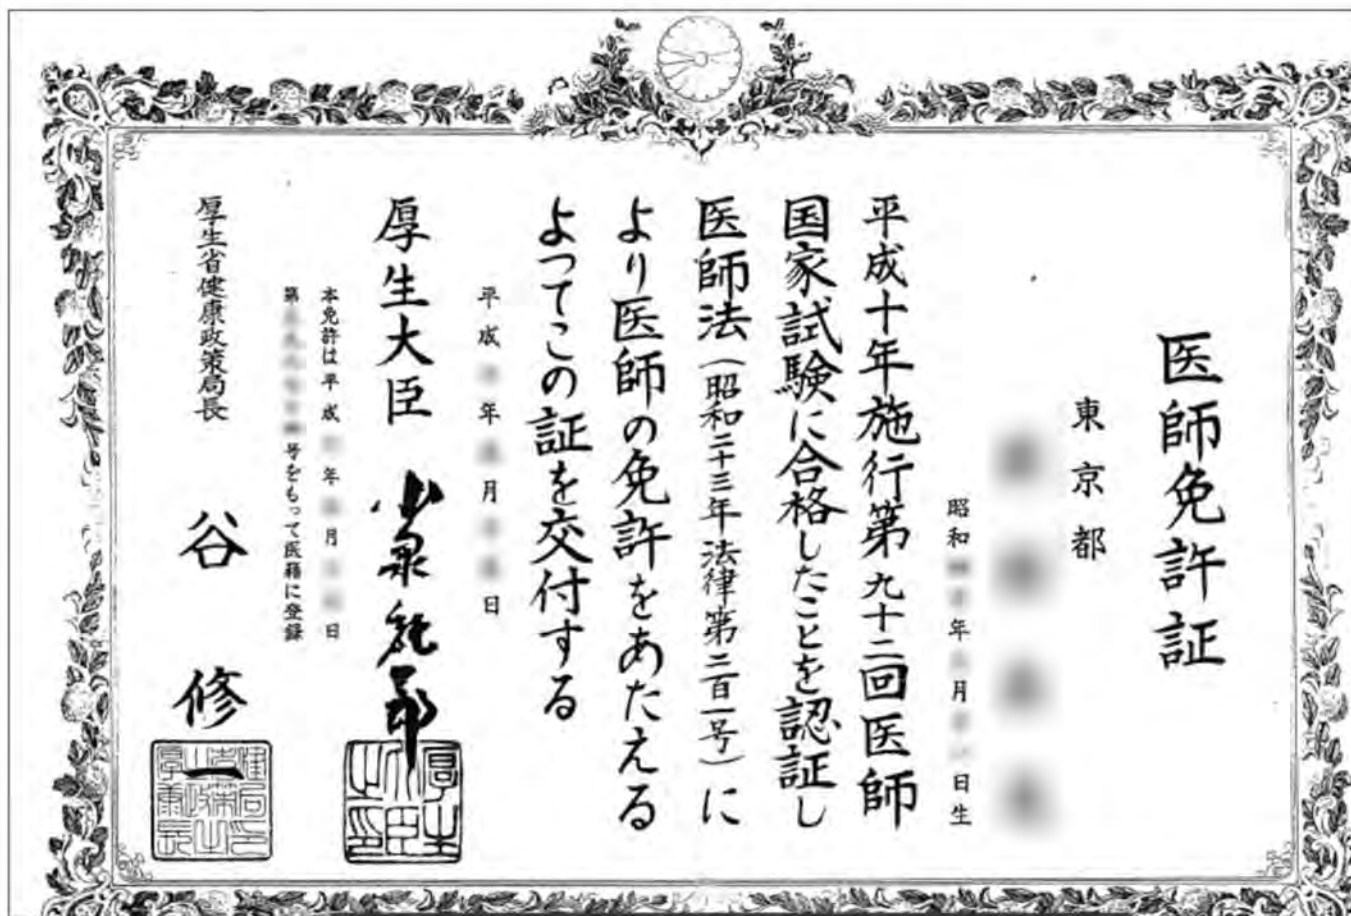 医師免許証
東京都
昭和 年 月 日生
平成十年施行第九十二回医師
国家試験に合格したことを認証し
医師法(昭和二十三年法律第二百一号)に
より医師の免許をあたえる
よつてこの証を交付する
平成 年 月 日
厚生大臣 小泉純一郎
本免許は平成 年 月 日
第 号をもって医籍に登録
厚生省健康政策局長 谷修一